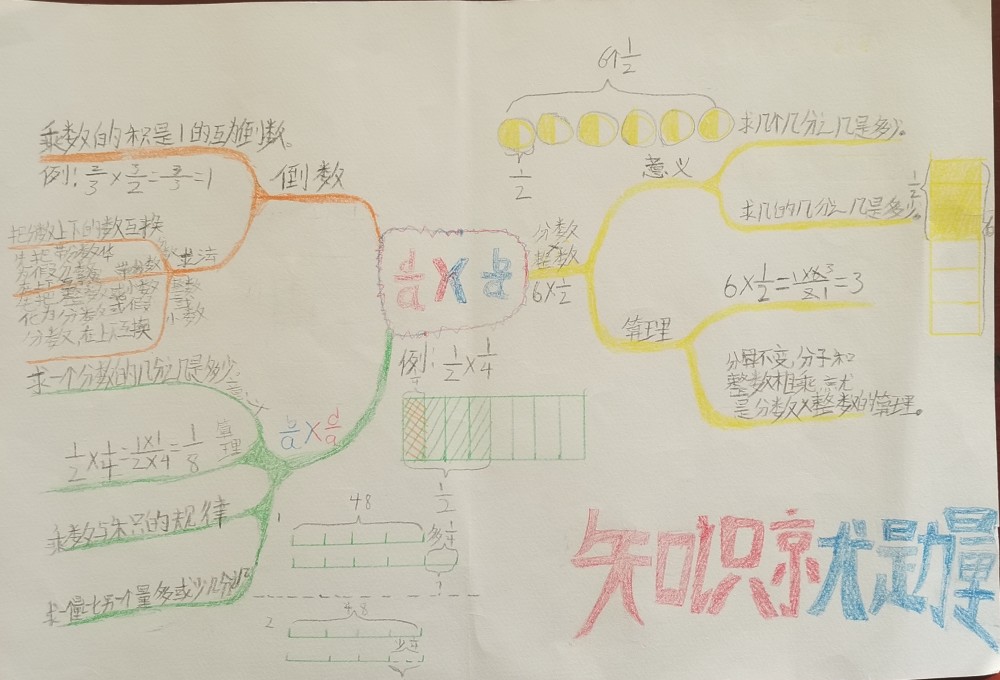 乘数的积是1的互为倒数。
例: 2/3 × 3/2 = 3/3 = 1
倒数
把分数上下的数互换
求法
带分数
小数
分数,在上下互换
d/a × b/a
6个1/2
1/2
意义
求几个几分之几是多少。
求几的几分之几是多少。
1/2
6
分数
×
整数
6×1/2
算理
6×1/2=1×6 3/2 1=3
分母不变,分子和
整数相乘,就
是分数×整数的算理。
例: 1/2 × 1/4
1/2
b/a × d/a
求一个分数的几分之几是多少。
意义
1/2 × 1/4 = 1×1/2×4 = 1/8
算理
乘数与积的规律
求一量比另一个量多或少几分之几
1
48
多1/4
?
2
48
少1/4
知识就是力量